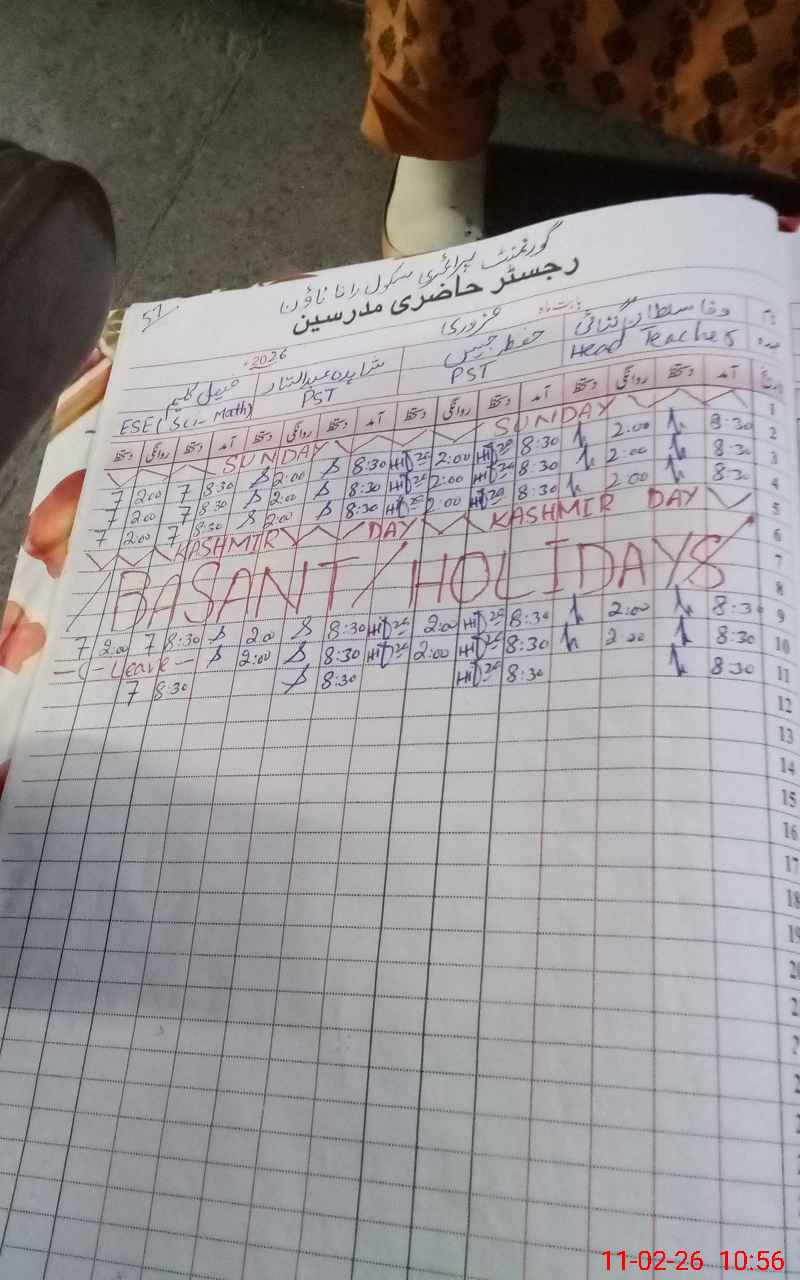 گورنمنٹ پرائمری سکول رانا ٹاؤن
رجسٹر حاضری مدرسین
51
بابت ماہ فروری 2026
نام
عہدہ Head Teacher PST PST ESE (Sci-Math)
تاریخ آمد دستخط روانگی دستخط آمد دستخط روانگی دستخط آمد دستخط روانگی دستخط آمد دستخط روانگی دستخط
1 SUNDAY SUNDAY
2 8:30 2:00 8:30 2:00 8:30 2:00 8:30 2:00
3 8:30 2:00 8:30 2:00 8:30 2:00 8:30 2:00
4 8:30 2:00 8:30 2:00 8:30 2:00 8:30 2:00
5 KASHMIR DAY KASHMIR DAY
6
7 BASANT / HOLIDAYS
8
9 8:30 2:00 8:30 2:00 8:30 2:00 8:30 2:00
10 8:30 2:00 8:30 2:00 8:30 2:00 - C - Leave -
11 8:30 8:30 8:30 8:30
12
13
14
15
16
17
18
19
11-02-26 10:56